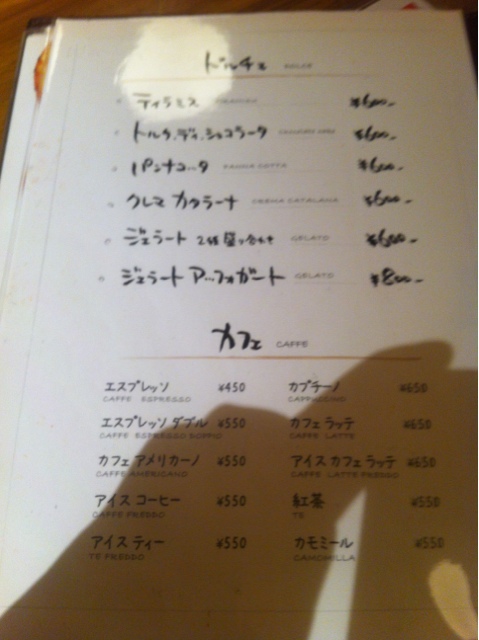 ドルチェ DOLCE
ティラミス TIRAMISU ¥600-
トルタ・ディ・ショコラータ ¥600-
パンナコッタ PANNA COTTA ¥600-
クレマ カタラーナ CREMA CATALANA ¥600-
ジェラート 2種盛り合わせ GELATO ¥600-
ジェラート アッフォガート GELATO ¥800-
カフェ CAFFE
エスプレッソ ¥450 カプチーノ ¥650
CAFFE ESPRESSO CAPPUCCINO
エスプレッソ ダブル ¥550 カフェ ラッテ ¥650
CAFFE ESPRESSO DOPPIO CAFFE LATTE
カフェ アメリカーノ ¥550 アイス カフェ ラッテ ¥650
CAFFE AMERICANO CAFFE LATTE FREDDO
アイス コーヒー ¥550 紅茶 ¥550
CAFFE FREDDO TE
アイス ティー ¥550 カモミール ¥550
TE FREDDO CAMOMILLA